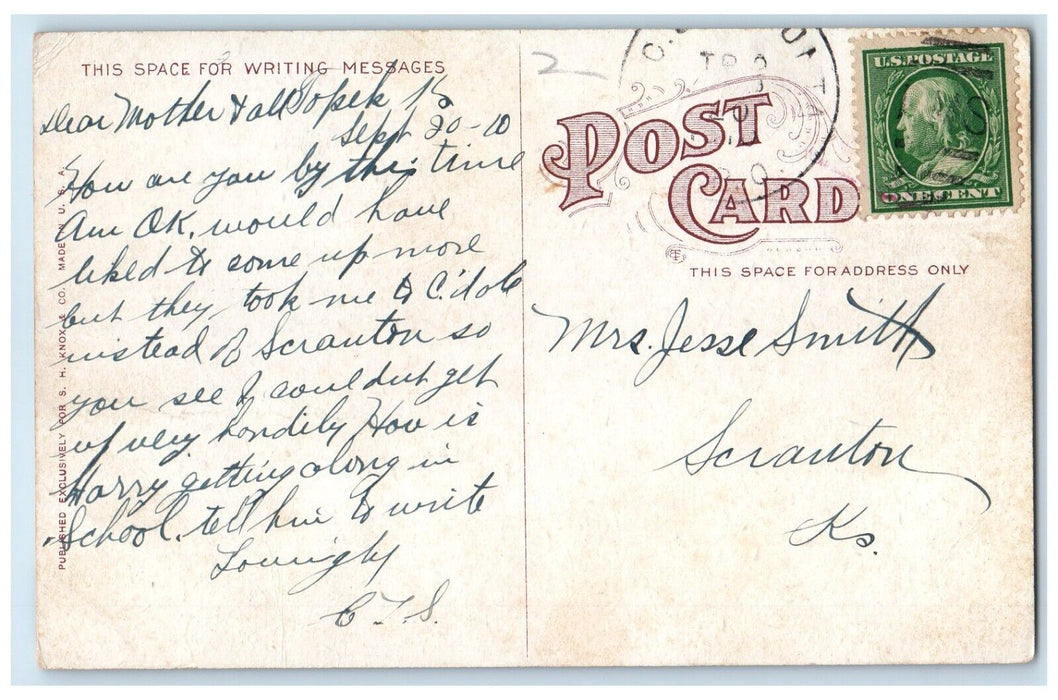 THIS SPACE FOR WRITING MESSAGES
Dear Mother & all Topek Ks
Sept 20-10
How are you by this time
Am OK, would have
liked to come up more
but they took me to C'dole
instead of Scranton so
you see I couldn't get
up very handily How is
Harry getting along in
School. tell him to write
Lovingly
C.T.S.
PUBLISHED EXCLUSIVELY FOR S. H. KNOX & CO. MADE IN U. S. A.
2
POST
CARD
U.S. POSTAGE
ONE CENT
THIS SPACE FOR ADDRESS ONLY
Mrs. Jesse Smith
Scranton
Ks.